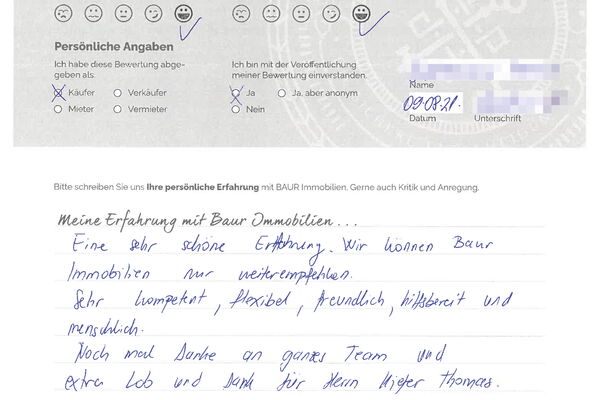 Persönliche Angaben
Ich habe diese Bewertung abge-
geben als:
Käufer
Verkäufer
Mieter
Vermieter
Ich bin mit der Veröffentlichung
meiner Bewertung einverstanden.
Ja
Ja, aber anonym
Nein
Name
09.08.21.
Datum
Unterschrift
Bitte schreiben Sie uns Ihre persönliche Erfahrung mit BAUR Immobilien. Gerne auch Kritik und Anregung.
Meine Erfahrung mit Baur Immobilien...
Eine sehr schöne Erfahrung. Wir können Baur
Immobilien nur weiterempfehlen.
Sehr kompetent, flexibel, freundlich, hilfsbereit und
menschlich.
Noch mal Danke an ganzes Team und
extra Lob und Dank für Herrn Kiefer Thomas.